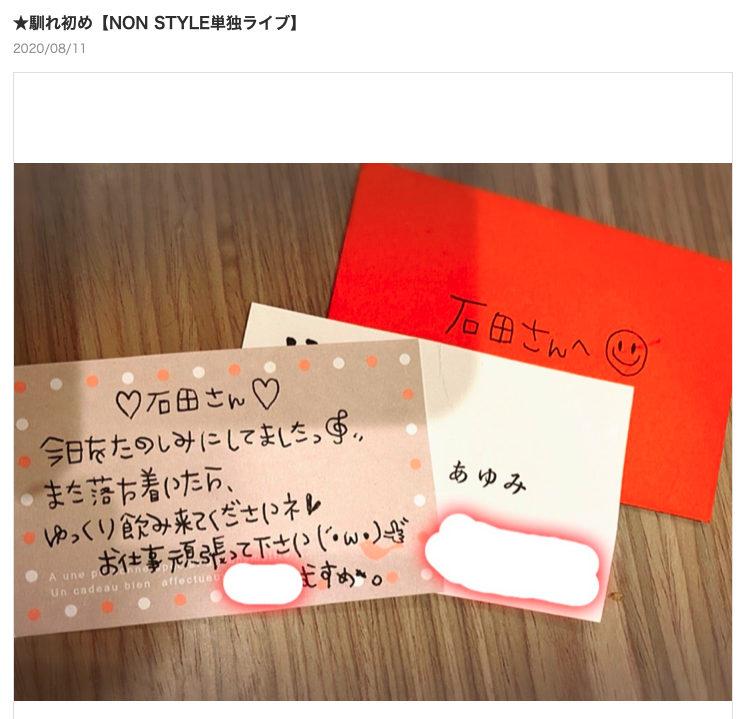 ★馴れ初め【NON STYLE単独ライブ】
2020/08/11
石田さんへ
♡石田さん♡
今日をたのしみにしてましたっ
また落ち着いたら、
ゆっくり飲み来てくださいネ
お仕事頑張って下さい(´･ω･)
むすめ
Un cadeau bien affectueu
あゆみ